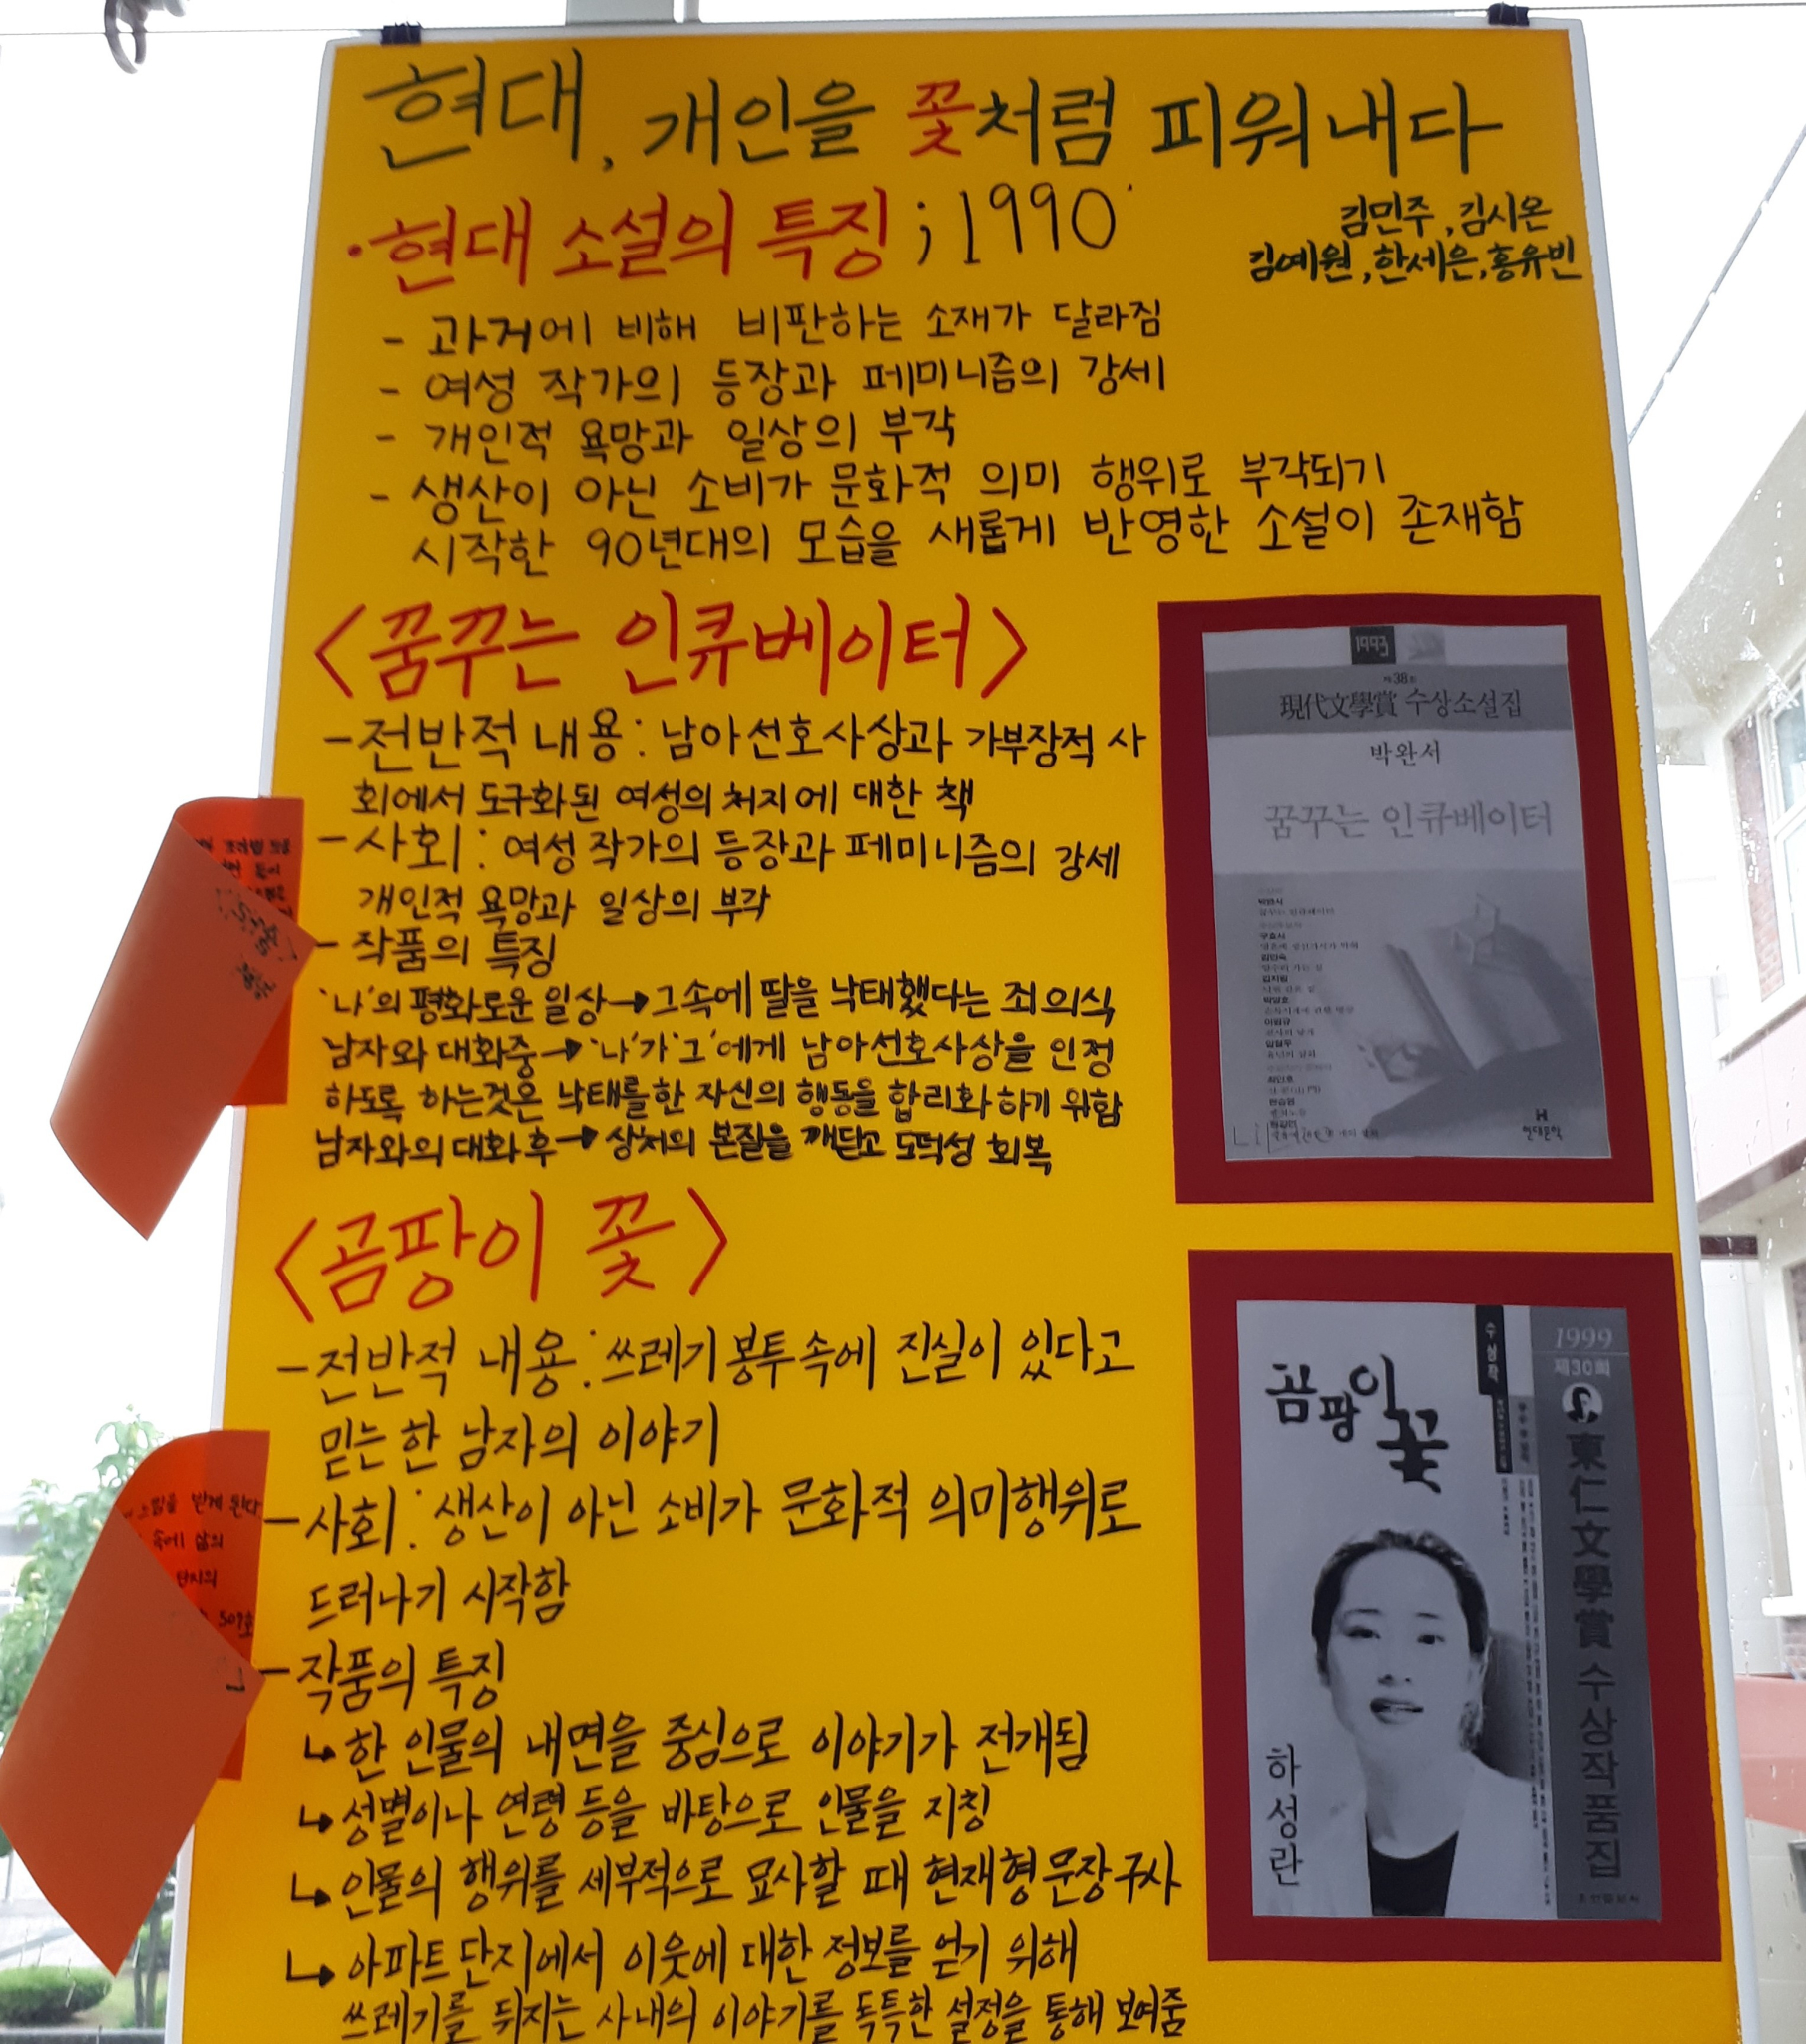 현대, 개인을 꽃처럼 피워내다
·현대 소설의 특징 ; 1990'
김민주, 김시온
김예원, 한세은, 홍유빈
- 과거에 비해 비판하는 소재가 달라짐
- 여성 작가의 등장과 페미니즘의 강세
- 개인적 욕망과 일상의 부각
- 생산이 아닌 소비가 문화적 의미 행위로 부각되기
시작한 90년대의 모습을 새롭게 반영한 소설이 존재함
<꿈꾸는 인큐베이터>
-전반적 내용: 남아선호사상과 가부장적 사
회에서 도구화된 여성의 처지에 대한 책
-사회: 여성 작가의 등장과 페미니즘의 강세
개인적 욕망과 일상의 부각
- 작품의 특징
'나'의 평화로운 일상→그속에 딸을 낙태했다는 죄의식
남자와 대화중→'나'가'그'에게 남아선호사상을 인정
하도록 하는것은 낙태를한 자신의 행동을 합리화하기 위함
남자와의 대화후→상처의 본질을 깨닫고 도덕성 회복
1993
제38회
現代文學賞 수상소설집
박완서
꿈꾸는 인큐베이터
박완서
현대문학
<곰팡이 꽃>
-전반적 내용:쓰레기봉투속에 진실이 있다고
믿는 한 남자의 이야기
-사회: 생산이 아닌 소비가 문화적 의미행위로
드러나기 시작함
-작품의 특징
↳한 인물의 내면을 중심으로 이야기가 전개됨
↳성별이나 연령 등을 바탕으로 인물을 지칭
↳인물의 행위를 세부적으로 묘사할 때 현재형문장구사
↳아파트단지에서 이웃에 대한 정보를 얻기 위해
쓰레기를 뒤지는 사내의 이야기를 독특한 설정을 통해 보여줌
곰팡이
꽃
하성란
수상작
1999
제30회
東仁文學賞 수상작품집
받게 된다.
속에 삶의
단지의
507호